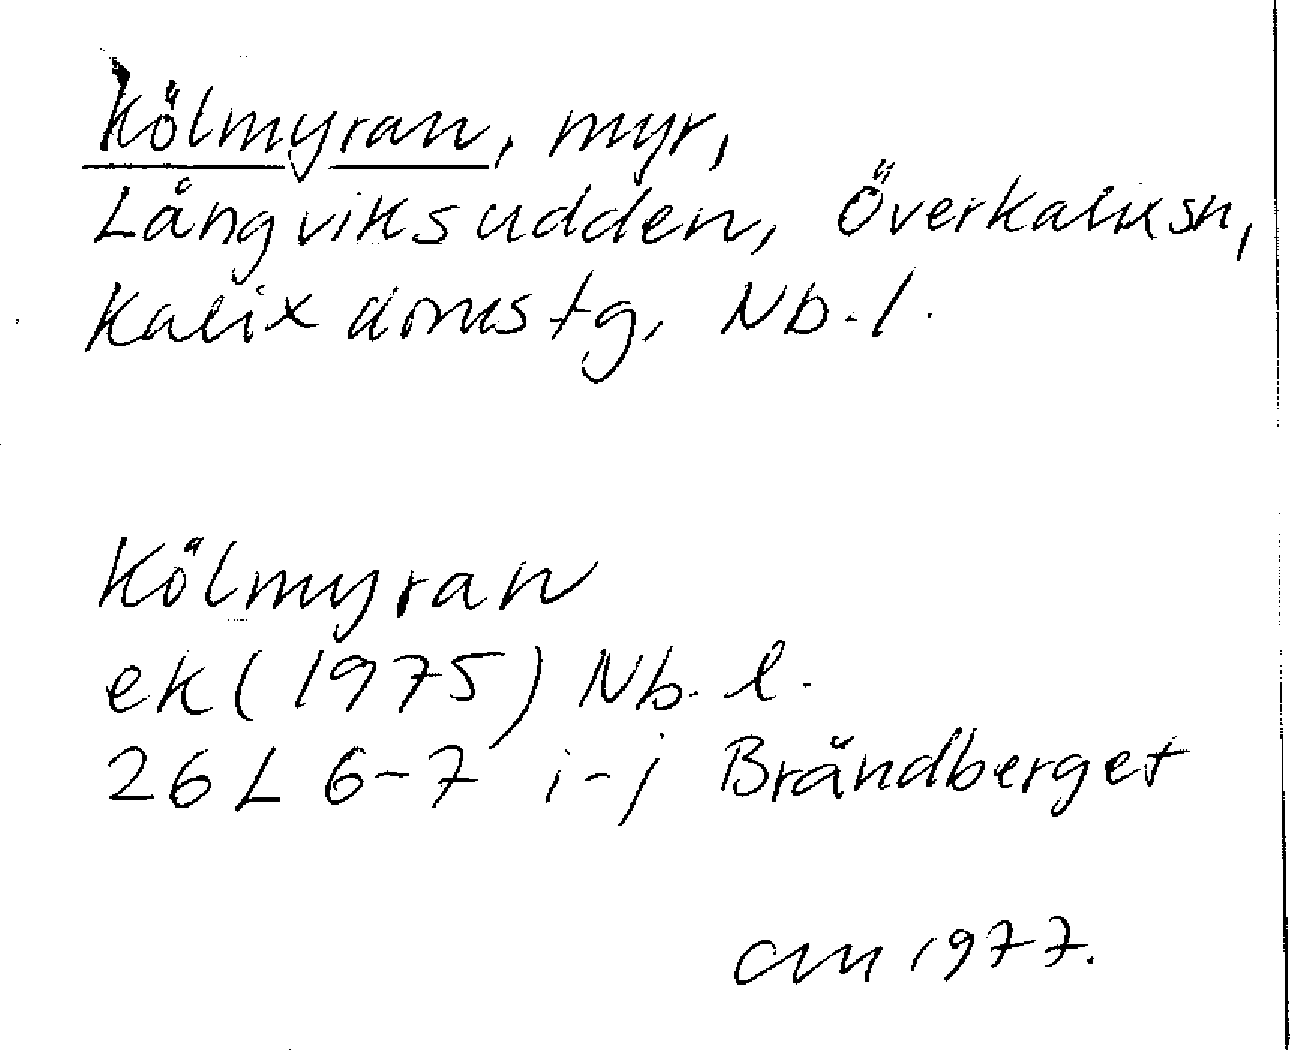 Kölmyran, myr,
Långviksudden, Överkalix sn,
Kalix domstg, Nb. l.
Kölmyran
ek (1975) Nb. l.
26 L 6-7 i-j Brändberget
CM 1977.